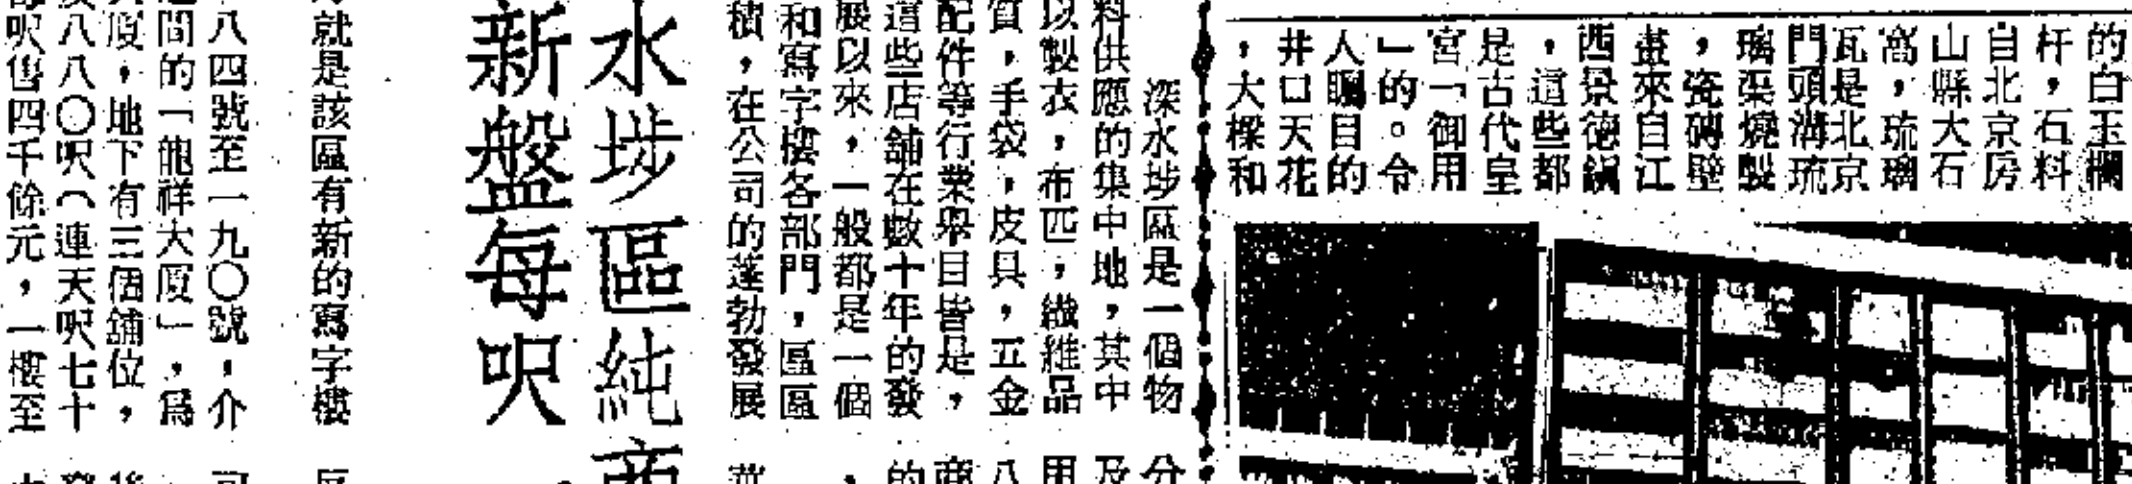 的白玉欄
杆，石料
自北京房
山縣大石
窩，琉璃
瓦是北京
門頭溝琉
璃渠燒製
，瓷磚壁
畫來自江
西景德鎮
，這些都
是古代皇
宮「御用
」的。令
人矚目的
井口天花
，大樑和
深水埗區是一個物
料供應的集中地，其中
以製衣，布匹，纖維品
質，手袋，皮具，五金
配件等行業舉目皆是，
這些店舖在數十年的發
展以來，一般都是一個
和寫字樓各部門，區區
積，在公司的蓬勃發展
分
及
用
八
的
水埗區純商
新盤每呎
就是該區有新的寫字樓
八四號至一九〇號，介
間的「龍祥大厦」，爲
厦，地下有三個舖位，
八八〇呎（連天呎七十
呎售四千餘元，一樓至